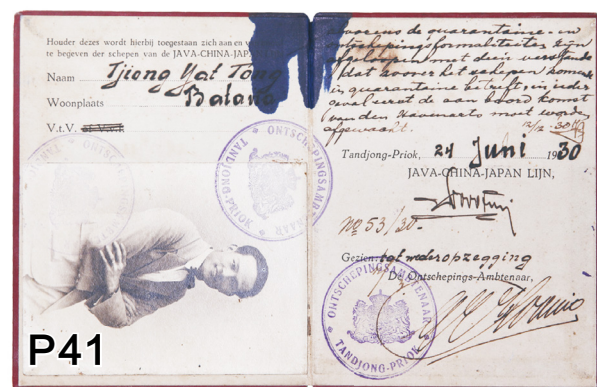 Houder dezes wordt hierbij toegestaan zich aan en v
te begeven der schepen van de JAVA-CHINA-JAPAN
Naam Tjiong Yat Tong
Woonplaats Batavia
V.t.V.
ONTSCHEPINGSAMBTENAAR
TANDJONG-PRIOK
P41
alvorens de quarantaine- en
ontschepingsformaliteiten zijn
afgeloopen met dien verstande
dat zoover het schepen komende
in quarantaine betreft, in ieder
geval eerst de aan boord komst
van den Havenarts moet worden
afgewacht.
12/2-30
Tandjong-Priok, 24 Juni 1930
JAVA-CHINA-JAPAN LIJN,
No 53/30.
Gezien: tot wederopzegging
De Ontschepings-Ambtenaar,
ONTSCHEPINGSAMBTENAAR
TANDJONG-PRIOK